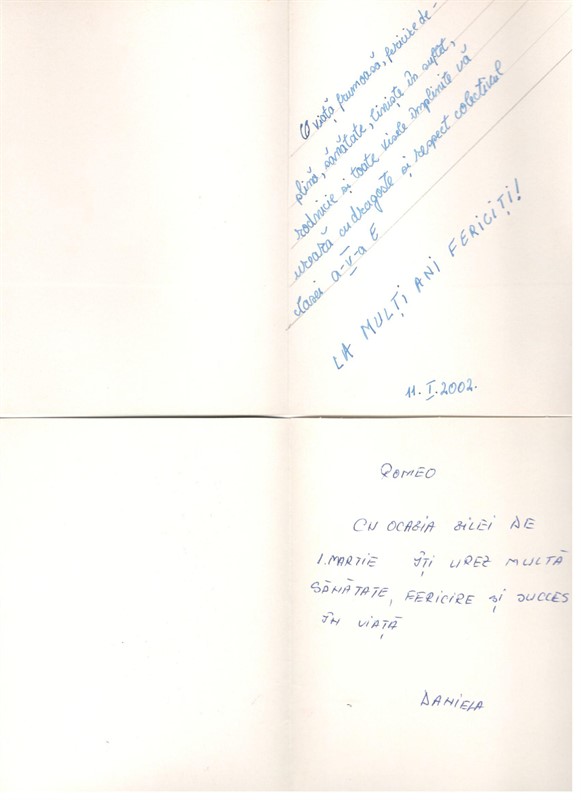 O viață frumoasă, fericire de-
plină, sănătate, liniște în suflet,
rodnicie și toate visele împlinite vă
urează cu dragoste și respect colectivul
clasei a-V-a E
LA MULȚI ANI FERICIȚI!
11.I.2002.
ROMEO
CU OCAZIA ZILEI DE
1.MARTIE ÎȚI UREZ MULTĂ
SĂNĂTATE, FERICIRE ȘI SUCCES
ÎN VIAȚĂ
DANIELA